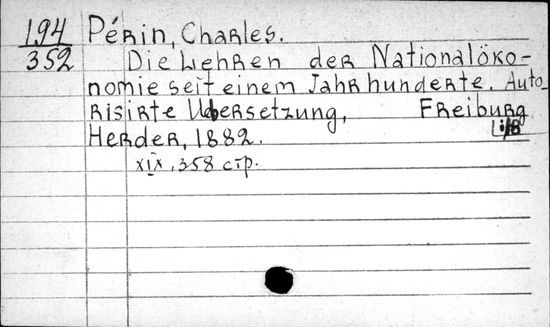 194 Périn, Charles.
352 Die Lehren der Nationalöko-
nomie seit einem Jahrhunderte. Auto-
risirte Uebersetzung, Freiburg
i/B
Herder, 1882.
XIX, 358 стр.